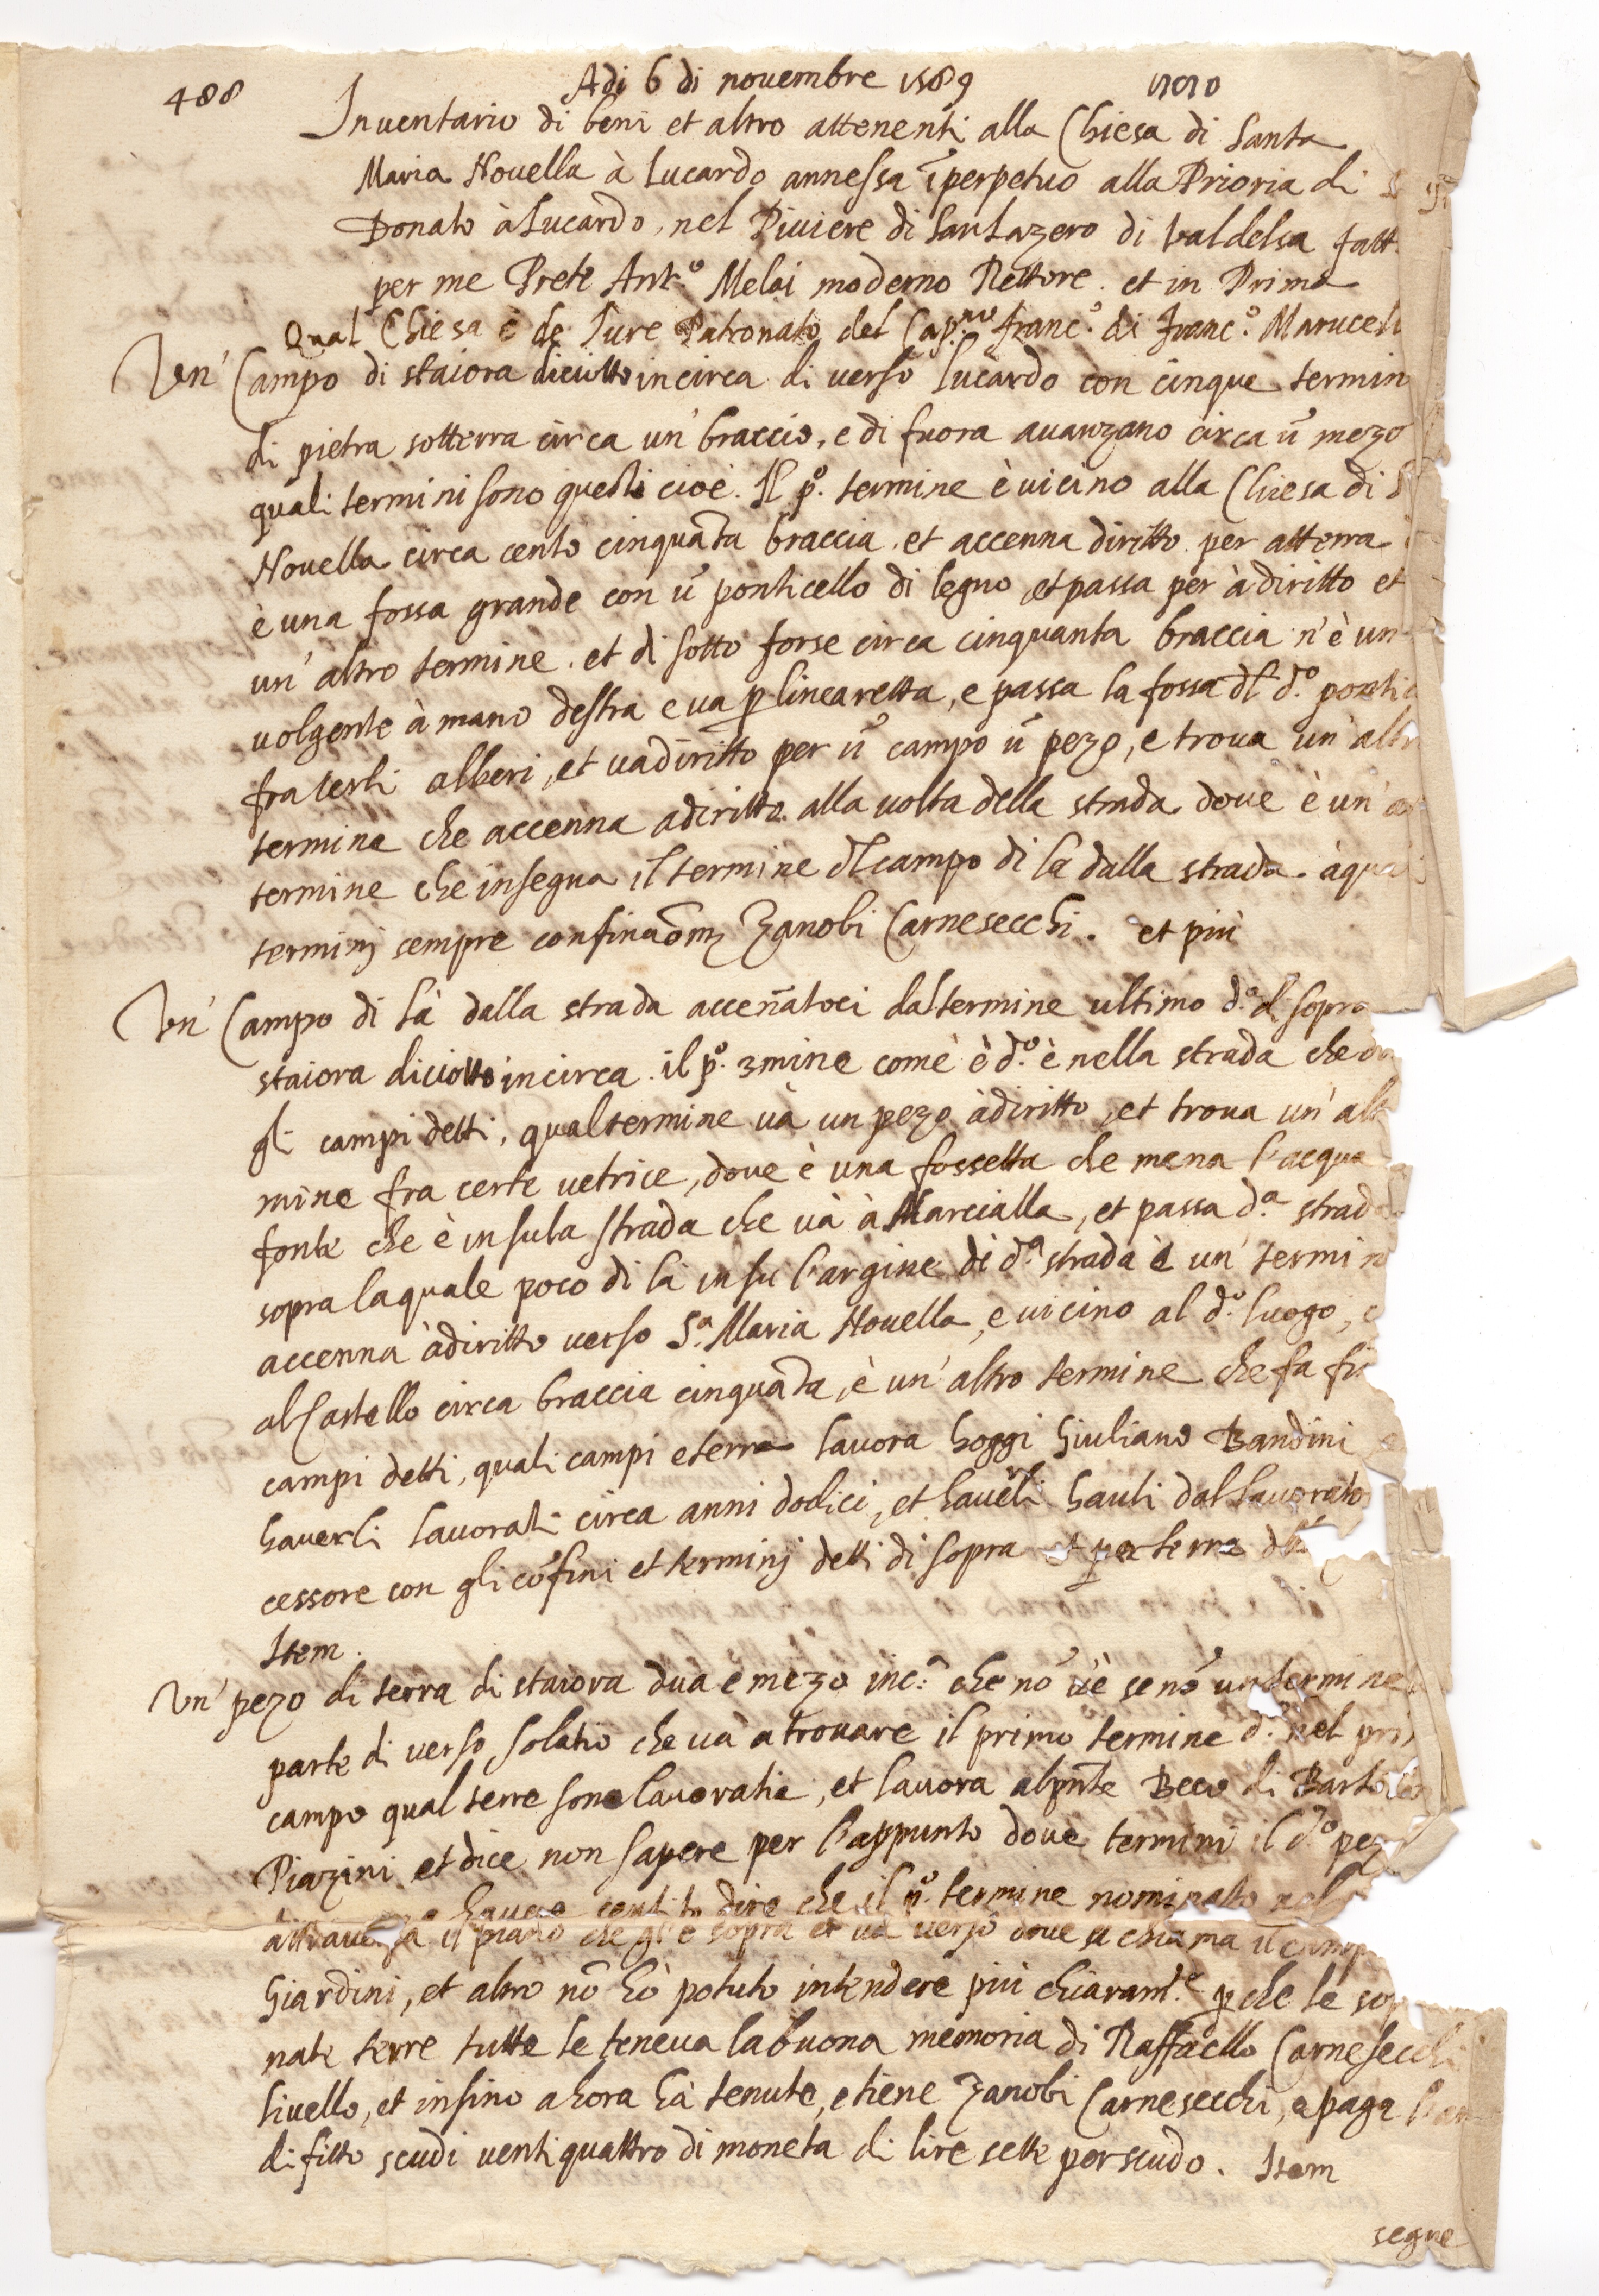 488
Adi 6 di nouembre 1589
Inuentario di beni et altro attenenti alla Chiesa di Santa
Maria Nouella à Lucardo annessa ĩperpetuo alla Prioria di S
Donato à Lucardo, nel Piuiere di San Lazero di Valdelsa fatt
per me Prete Ant.º Meloi moderno Rettore. et in Prima
Qual Chiesa è de Jure Patronato del Cap.no franc.º di franc.º Marucell
Vn' Campo di staiora diciotto incirca di uerso Lucardo con cinque termin
di pietra sotterra circa un' braccio, e di fuora auanzano circa ũ mezo
quali termini sono questi cioè. Il pº. termine è uicino alla Chiesa di S
Nouella circa cento cinquãta braccia. et accenna diritto per atterra
è una fossa grande con ũ ponticello di legno, et passa per à diritto et
un' altro termine. et di sotto forse circa cinquanta braccia n'è un
uolgente à mano destra e ua p linea retta, e passa la fossa dl d.º pontic
fra certi alberi, et ua diritto per ũ campo ũ pezo, e troua un' altr
termine che accenna adiritto alla uolta della strada doue è un' a
termine che insegna il termine dl campo di la dalla strada. à qua
terminj sempre confina Zanobi Carnesecchi. et più
Vn' Campo di là dalla strada acceñatoci dal termine ultimo d.º di sopra
staiora diciotto incirca. il pº. 3mine come è d.º è nella strada che di
gli campi detti, qual termine uà un pezo àdiritto, et troua un' alt
mine fra certe uetrice, doue è una fossetta che mena l'acqua
fonte che è in su la strada che uà à Marcialla, et passa d.ª strad
sopra la quale poco di la in su l'argine di d.ª strada è un' termin
accenna àdiritto uerso S.ª Maria Nouella, e uicino al d.º luogo, e
al Castello circa braccia cinquãta, è un' altro termine che fa fi
campi detti, quali campi e terre lauora hoggi Giuliano Bandini
hauerli lauorati circa anni dodici, et hauerli hauti dal lauorato
cessore con gli cõfini et terminj detti di sopra et per terra
Item.
Vn' pezo di terra di staiora dua e mezo inc.ª che nõ u'è se nõ un termine
parte di uerso solatio che uà a trouare il primo termine d.º nel pri
campo qual terre sono lauoratie, et lauora alpñte Beco di Bartolo
Piazini et dice non sapere per l'appunto doue termini il d.º pez
hauere sentito dire che il pº. termine nominato nel
attrauersa il piano che gl'è sopra et uà uerso doue si chiama il camp
Giardini, et altro nõ hò potuto intendere più chiaram.te pche le sop
nate terre tutte le teneua la buona memoria di Raffaello Carnesecchi
liuello, et insino a hora hà tenute, e tiene Zanobi Carnesecchi, e paga l'an
di fitto scudi uenti quattro di moneta di lire sette per scudo. Item
segue